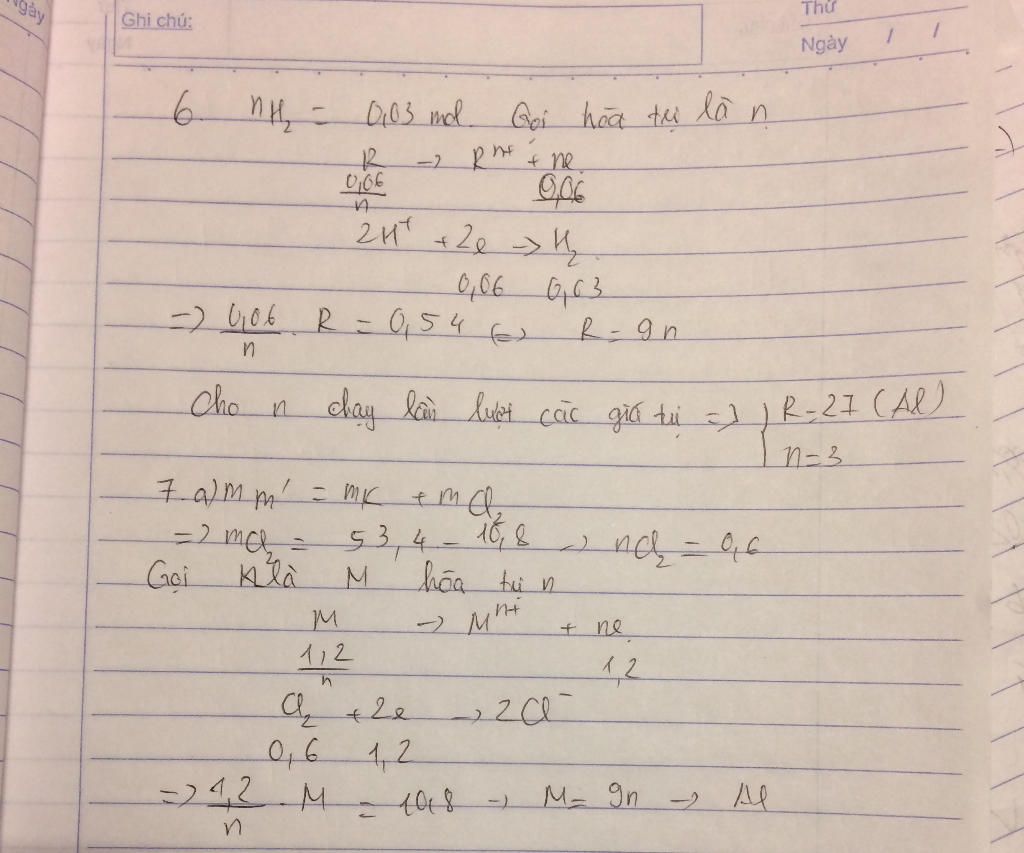 Ngày
Ghi chú:
Thứ
Ngày / /
6. nH₂ = 0,03 mol. Gọi hóa trị là n
R → Rⁿ⁺ + ne
0,06/n 0,06
2H⁺ + 2e → H₂
0,06 0,03
=> 0,06/n . R = 0,54 <=> R = 9n
Cho n chạy lần lượt các giá trị => { R = 27 (Al)
n = 3
7. a) m m' = mK + mCl₂
=> mCl₂ = 53,4 - 10,8 → nCl₂ = 0,6
Gọi KL là M hóa trị n
M → Mⁿ⁺ + ne
1,2/n 1,2
Cl₂ + 2e → 2Cl⁻
0,6 1,2
=> 1,2/n . M = 10,8 → M = 9n → Al